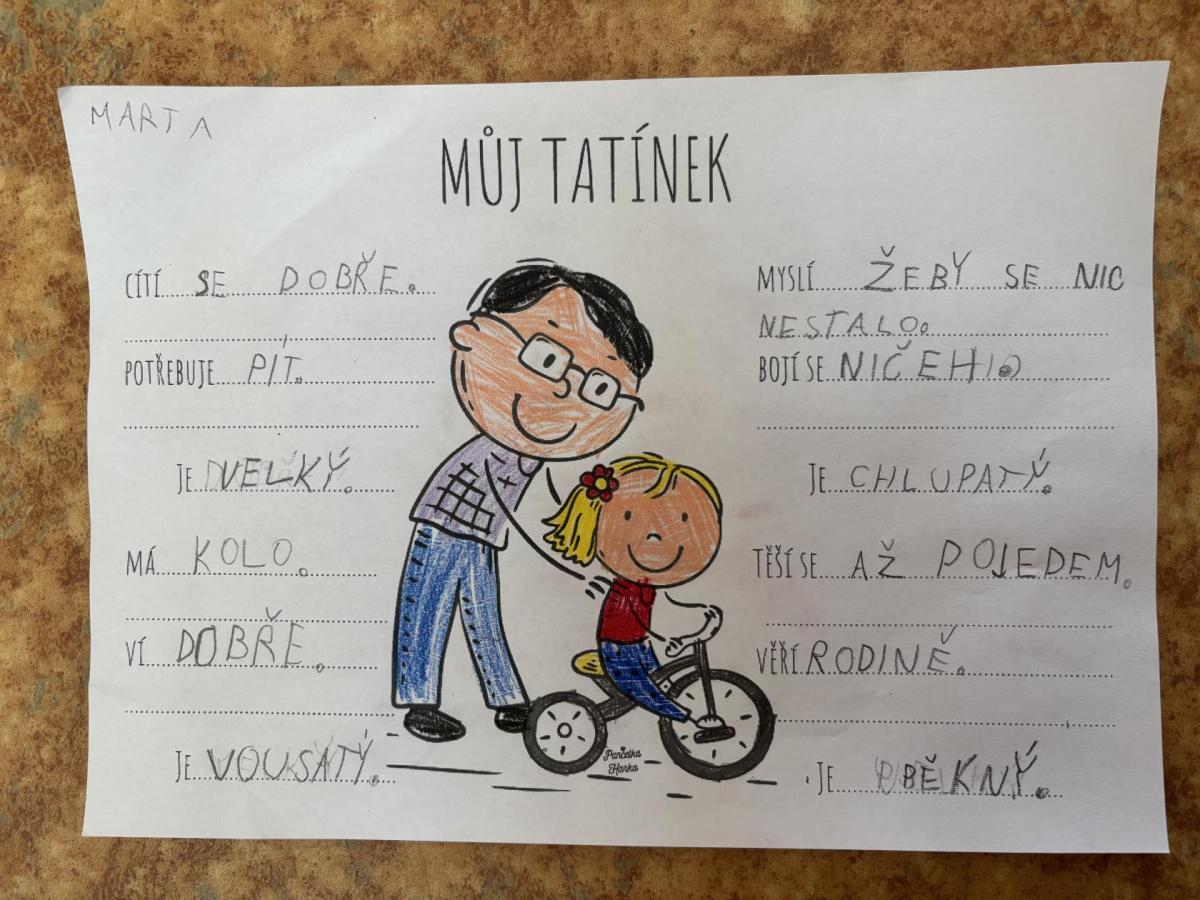 MARTA
MŮJ TATÍNEK
CÍTÍ SE DOBŘE.
POTŘEBUJE PÍT.
JE VELKÝ.
MÁ KOLO.
VÍ DOBŘE.
JE VOUSATÝ.
MYSLÍ ŽEBY SE NIC
NESTALO.
BOJÍ SE NIČEHO
JE CHLUPATÝ.
TĚŠÍ SE AŽ POJEDEM.
VĚŘÍ RODINĚ.
JE PĚKNÝ.
Pančelka
Hanka